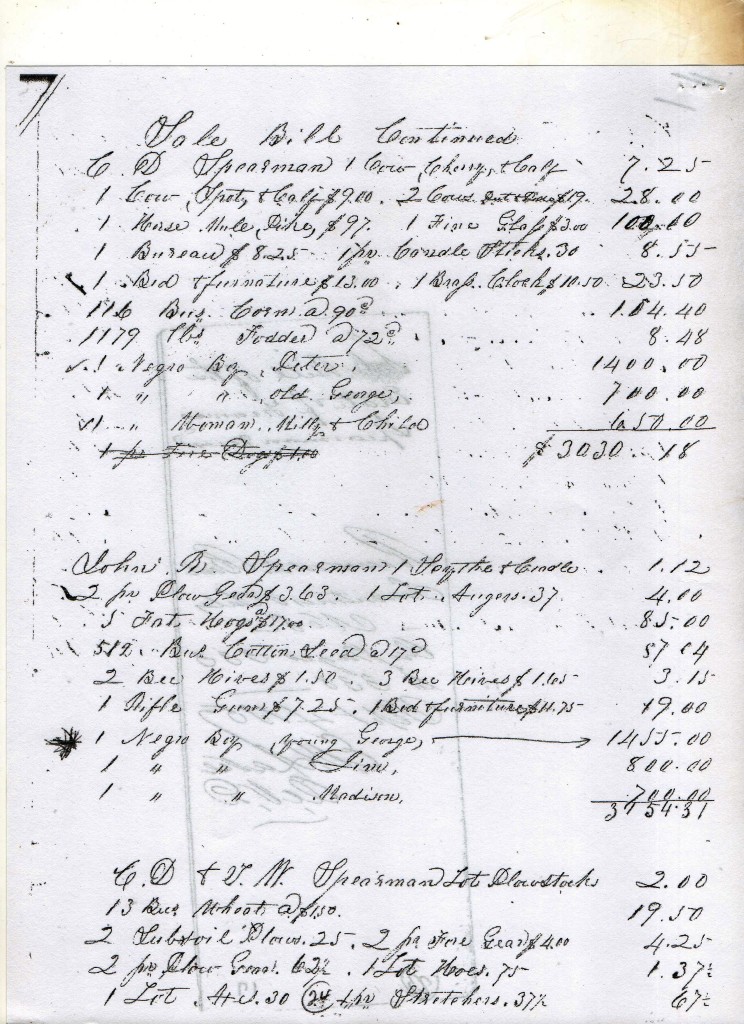 Sale Bill Continued
C. D Spearman 1 Cow, Cherry, & Calf 7.25
1 Cow, Spot, & Calf $9.00 2 Cows $19. 28.00
1 Horse Mule, Pike, $97. 1 Fine Glass $3.00 100.00
1 Bureau $8.25 1 pr Candle Sticks .30 8.55
1 Bed & furnature $13.00 . 1 Brass Clock $10.50 23.50
116 Bus. Corn @ 90c 104.40
1179 lbs Fodder @ 72c 8.48
1 Negro Boy, Peter, 1400.00
1 " " , old George, 700.00
1 " Woman, Milly & Child 650.00
1 pr Fire Dogs $1.00 $3030.18
John R. Spearman 1 Scythe & Cradle 1.12
2 pr Plow Gear $3.63 . 1 Lot Augers .37 4.00
5 Fat Hogs @ $17.00 85.00
512 Bus Cotton Seed @ 17c 87 04
2 Bee Hives $1.50 . 3 Bee Hives $1.65 3.15
1 Rifle Gun $7.25 . 1 Bed & furniture $11.75 19.00
1 Negro Boy, young George, 1455.00
1 " " Jim, 800.00
1 " " Madison, 700.00
3154.31
C. D & W. Spearman Lot Plowstocks 2.00
13 Bus Wheat @ $1.50. 19.50
2 Subsoil Plows .25 . 2 pr Fore Gear $4.00 4.25
2 pr Plow Gear .62½ . 1 Lot Hoes .75 1.37½
1 Lot .30 24 1 pr Stretchers .37½ 67½